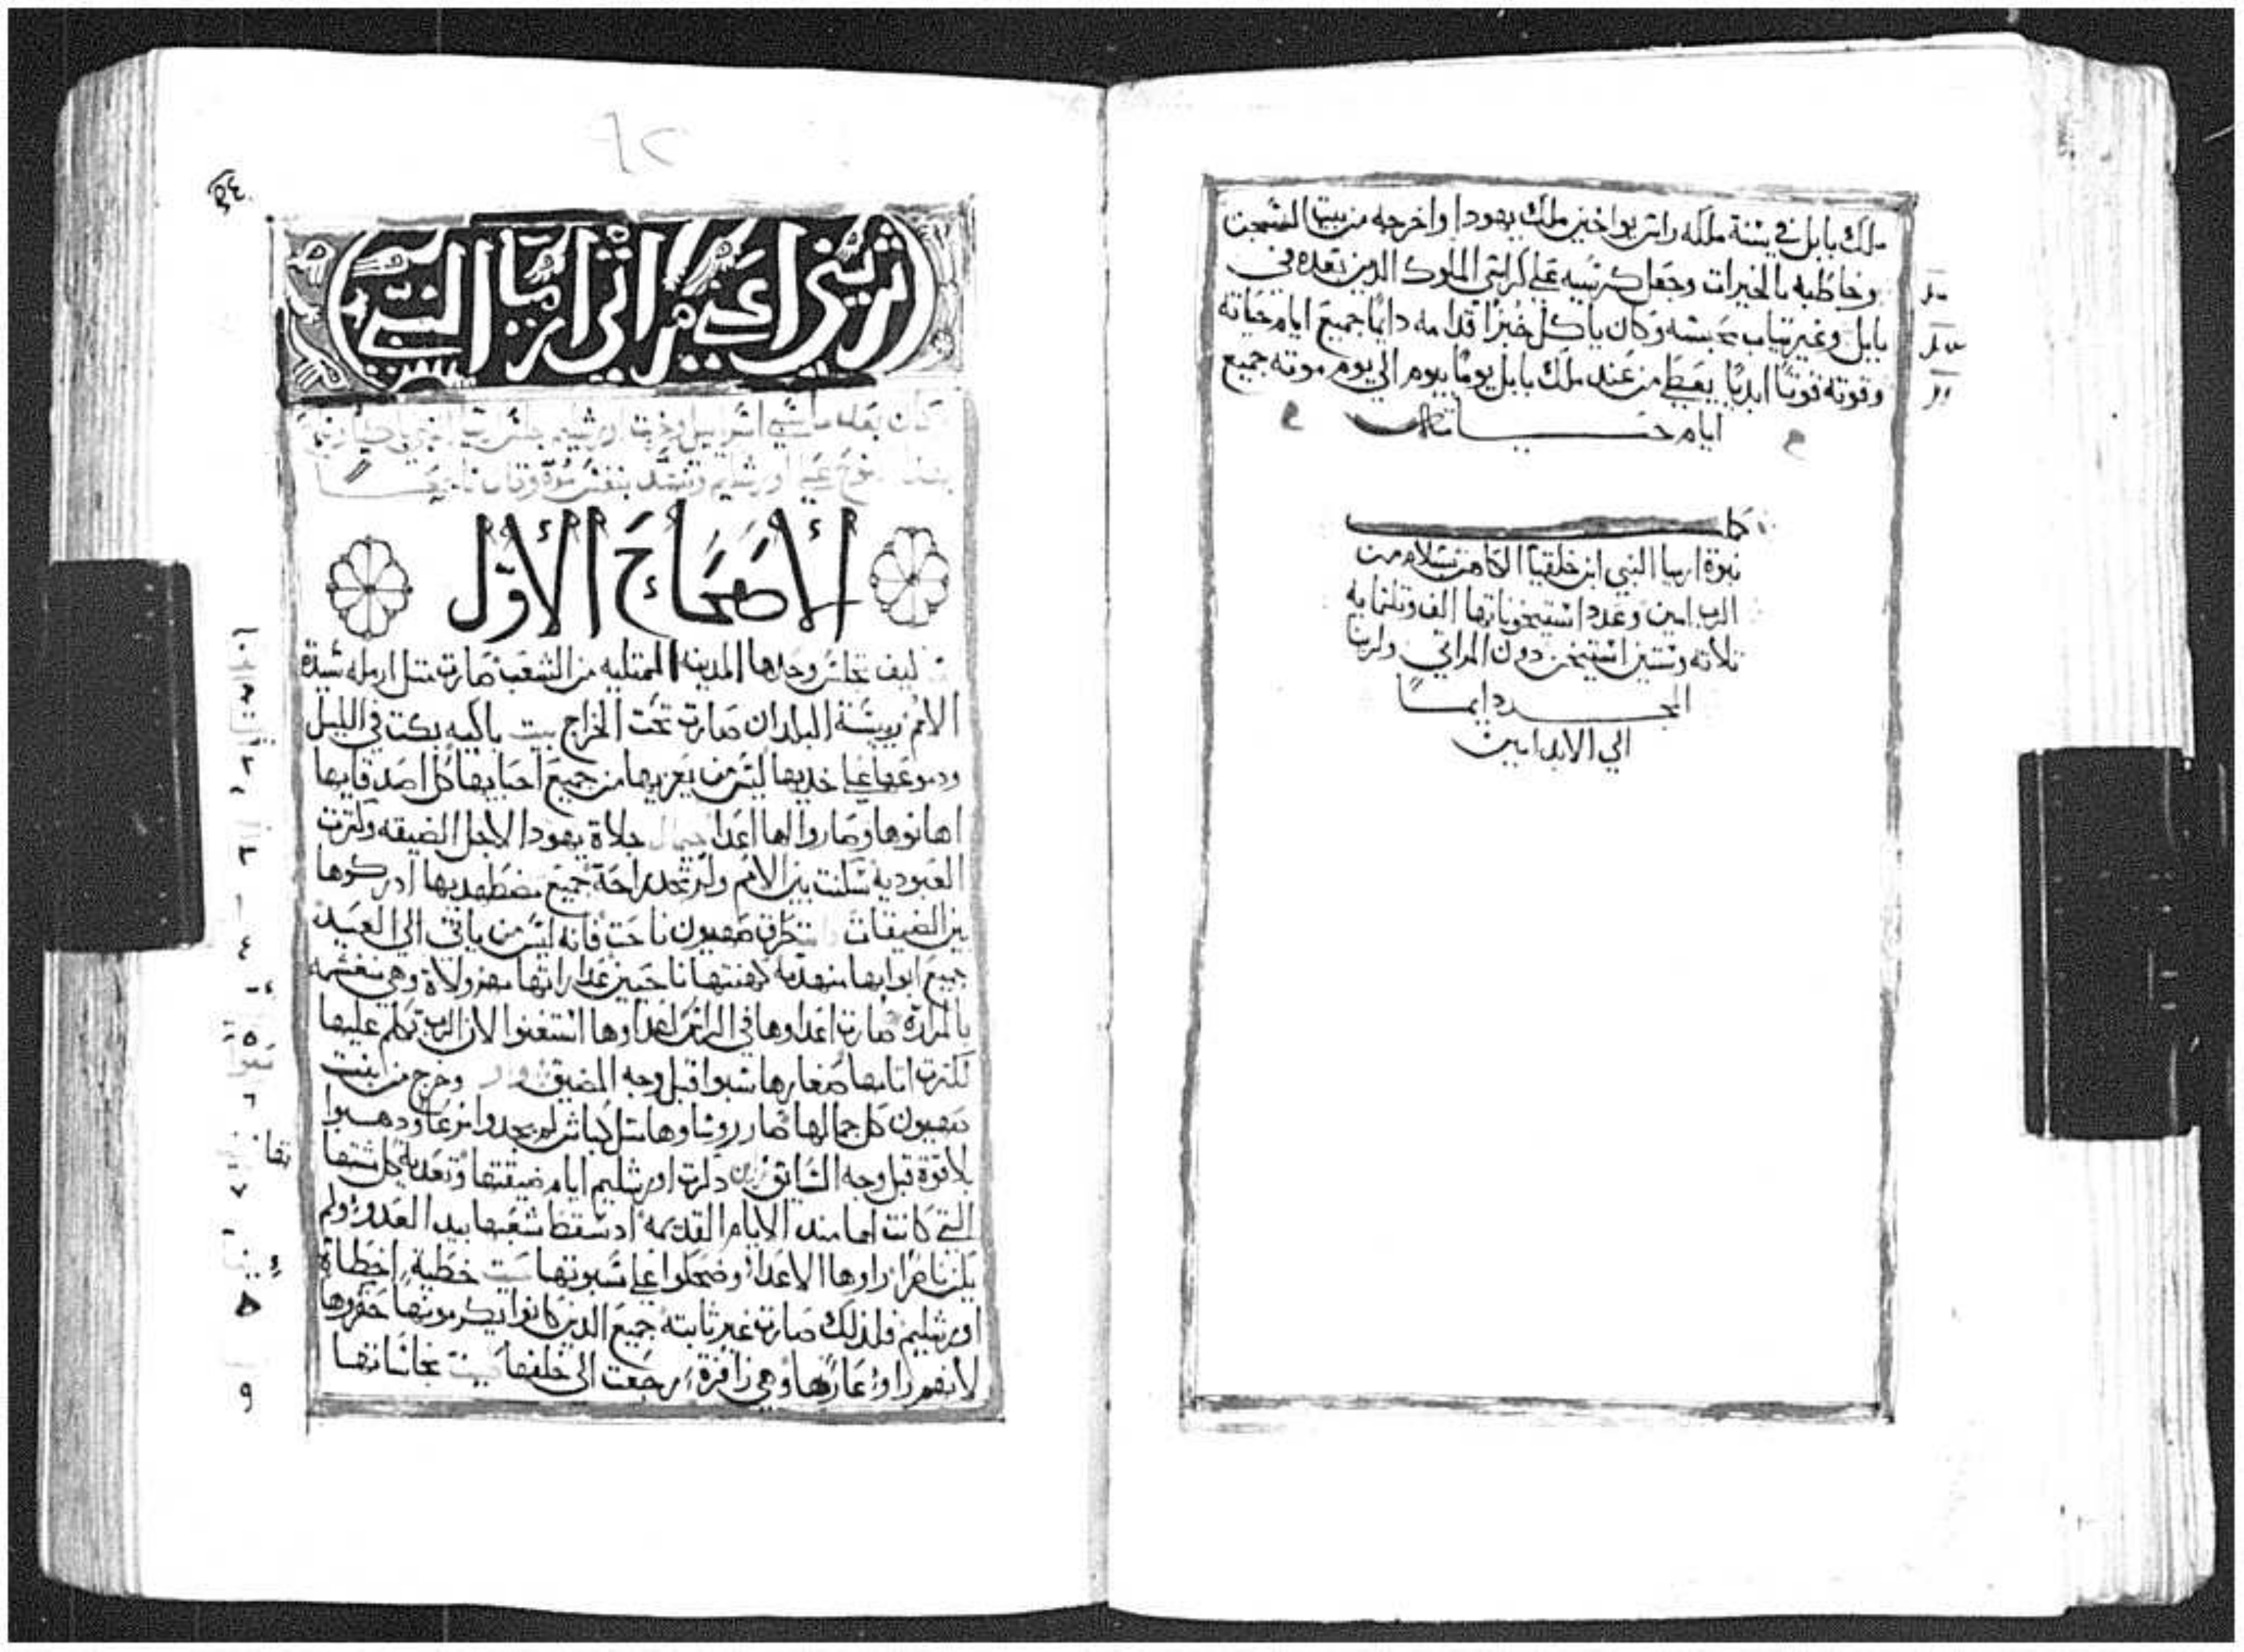 ملك بابل في سنة ملكه راس يواخين ملك يهودا واخرجه من بيت السجن
وخاطبه بالخيرات وجعل كرسيه علي كراسي الملوك الدين بعده في
بابل وغير تياب محبسه وكان ياكل خبزًا قدامه دايمًا جميع ايام حياته
وقوته قوتًا ابديًا يعطا من عند ملك بابل يومًا بيوم الي يوم موته جميع
ايام حياته
كمل
نبوة ارميا النبي ابن خلقيا الكاهن بسلام من
الرب امين وعدد استيخوناتها الف وتلتمايه
تلاته وستين استيخن دون المراتي ولربنا
المجد دايمًا
الي الابد امين
ثريني اعني مراثي ارميا النبي
كان بعد ما سبي اسراييل وخربت اورشليم جلس ارميا النبي باكيًا
اورشليم وتنهد بنفس مرة وقال
الأصحاح الأول
كيف تجلس وحدها المدينه الممتليه من الشعب صارت متل ارمله سيدة
الامم رييسة البلدان صارت تحت الخراج بيت باكيه بكت في الليل
ودموعها علي خديها ليس من يعزيها من جميع احبايها كل اصدقايها
اهانوها وصاروا لها اعدا جلاة يهودا لاجل الضيقه وكترت
العبوديه سكنت بين الامم ولم تجد راحة جميع مضطهديها ادركوها
بين الضيقات طرق صهيون ناحت فانه ليس من ياتي الي العيد
جميع ابوابها منهدمه كهنتها ناحين عداراتها مهزولاة وهي منغشمه
بالمرارة صارت اعداوها في الراس اعداوها استغنوا لان الرب تكلم عليها
لكترت اتامها صغارها سبوا قبل وجه المضيق وخرج من ابنت
صهيون كل جمالها صار روساوها متل كباش لم يجدوا مرعا ودهبوا
بلا قوة قبل وجه السايق دكرت اورشليم ايام ضيقتها وتعديه كل شتها
التي كانت لها مند الايام القديمه اد سقط شعبها بيد العدو ولم
يكن ناصرًا راوها الاعدا وضحكوا علي سبوتها خطية اخطاة
اورشليم فلذلك صارت غير ثابته جميع الدين كانوا يكرمونها حقروها
لانهم راوا عارها وهي زافرة رجعت الي خلفها نجاساتها